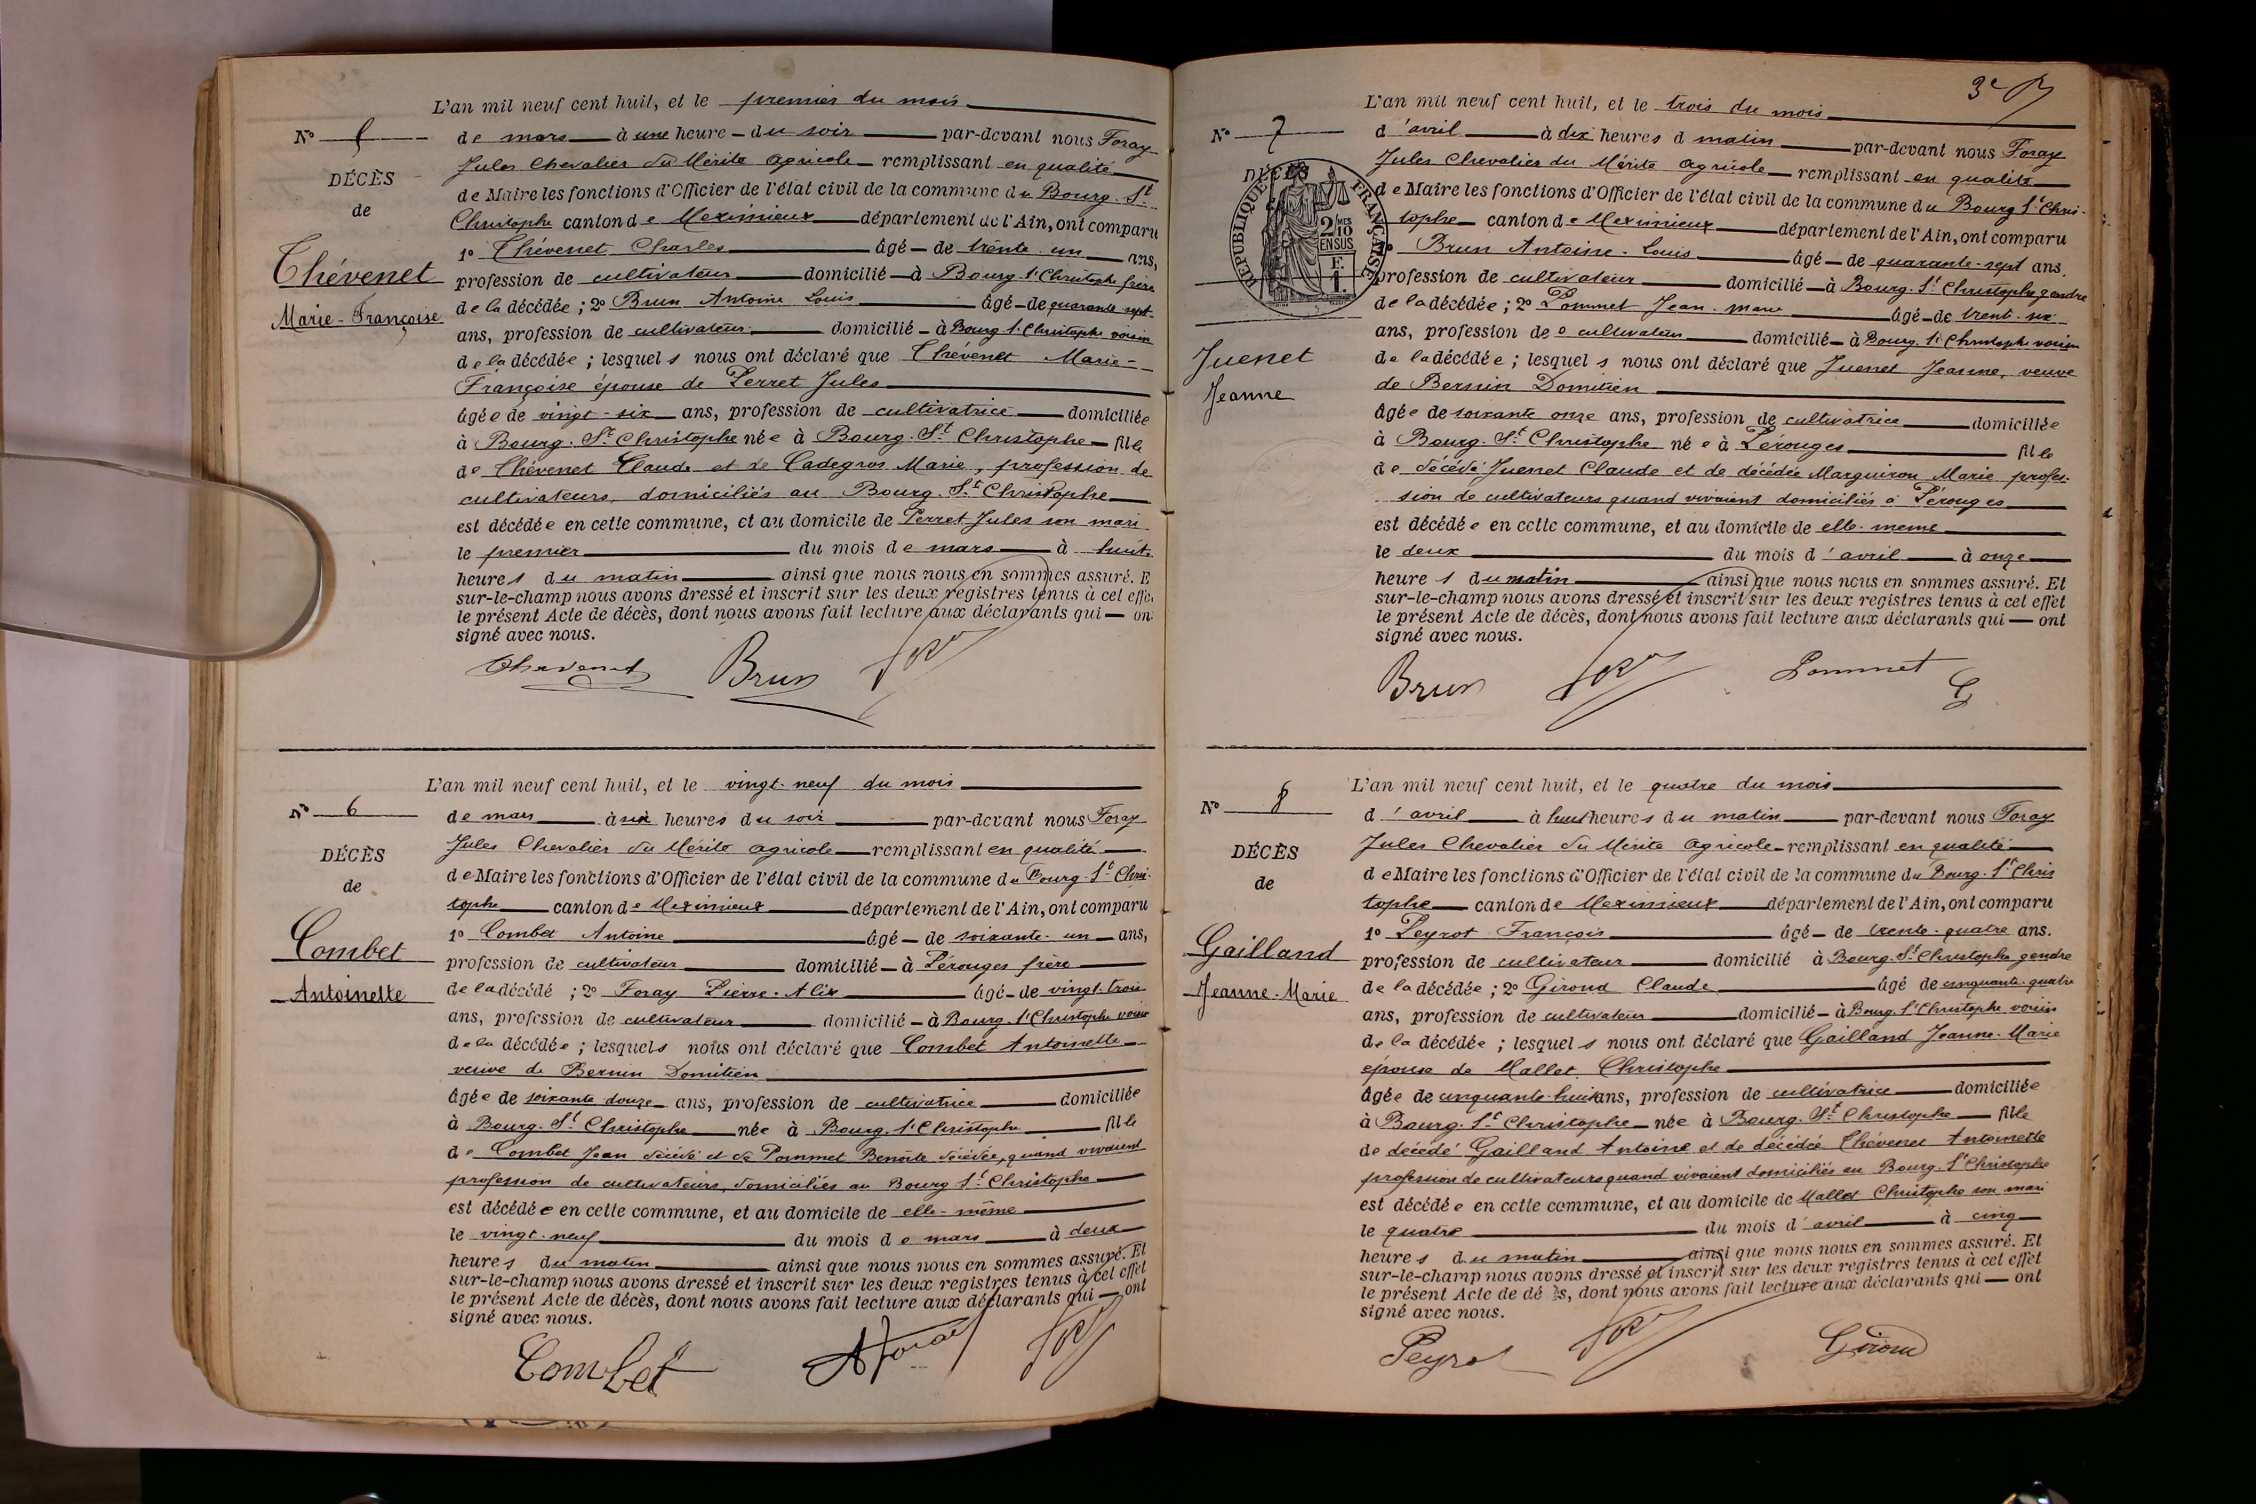 L'an mil neuf cent huit, et le premier du mois
N° 5
de mars à une heure du soir par-devant nous Foray
Jules Chevalier du Mérite agricole remplissant en qualité
DÉCÈS
de Maire les fonctions d'Officier de l'état civil de la commune du Bourg. St
de
Christophe canton de Meximieux département de l'Ain, ont comparu
1° Thévenet Charles âgé de trente un ans,
Thévenet
profession de cultivateur domicilié à Bourg St Christophe frère
Marie-Françoise
de la décédée ; 2° Brun Antoine Louis âgé de quarante sept
ans, profession de cultivateur domicilié à Bourg St Christophe voisin
de la décédée ; lesquels nous ont déclaré que Thévenet Marie-
Françoise épouse de Perret Jules
âgée de vingt-six ans, profession de cultivatrice domiciliée
à Bourg. St Christophe née à Bourg. St Christophe fille
de Thévenet Claude et de Cadegros Marie, profession de
cultivateurs, domiciliés au Bourg. St Christophe
est décédée en cette commune, et au domicile de Perret Jules son mari
le premier du mois de mars à huit
heures du matin ainsi que nous nous en sommes assuré. E
sur-le-champ nous avons dressé et inscrit sur les deux registres tenus à cet effe
le présent Acte de décès, dont nous avons fait lecture aux déclarants qui on
signé avec nous.
Thevenet Brun
L'an mil neuf cent huit, et le vingt-neuf du mois
N° 6
de mars à six heures du soir par-devant nous Foray
Jules Chevalier du Mérite agricole remplissant en qualité
DÉCÈS
de Maire les fonctions d'Officier de l'état civil de la commune du Bourg. St Chris-
de
tophe canton de Meximieux département de l'Ain, ont comparu
1° Combet Antoine âgé de soixante-un ans,
Combet
profession de cultivateur domicilié à Pérouges frère
Antoinette
de la décédé ; 2° Foray Pierre-Alix âgé de vingt-trois
ans, profession de cultivateur domicilié à Bourg. St Christophe voisin
de la décédée ; lesquels nous ont déclaré que Combet Antoinette
veuve de Bernin Domitien
âgée de soixante douze ans, profession de cultivatrice domiciliée
à Bourg. St Christophe née à Bourg. St Christophe fille
de Combet Jean décédé et de Pommet Benoîte décédée, quand vivaient
profession de cultivateurs, domiciliés au Bourg St Christophe
est décédée en cette commune, et au domicile de elle-même
le vingt-neuf du mois de mars à deux
heures du matin ainsi que nous nous en sommes assuré. Et
sur-le-champ nous avons dressé et inscrit sur les deux registres tenus à cet effet
le présent Acte de décès, dont nous avons fait lecture aux déclarants qui ont
signé avec nous.
Combet A Foray
3e
L'an mil neuf cent huit, et le trois du mois
N° 7
d'avril à dix heures d matin par-devant nous Foray
Jules Chevalier du Mérite agricole remplissant en qualité
DÉCÈS
RÉPUBLIQUE FRANÇAISE
2/10 MES EN SUS
F. 1.
de Maire les fonctions d'Officier de l'état civil de la commune du Bourg St Chris-
tophe canton de Meximieux département de l'Ain, ont comparu
Brun Antoine-Louis âgé de quarante-sept ans.
profession de cultivateur domicilié à Bourg. St Christophe gendre
de la décédée ; 2° Pommet Jean-Marie âgé de trente-six
ans, profession de cultivateur domicilié à Bourg. St Christophe voisin
Juenet
Jeanne
de la décédée ; lesquels nous ont déclaré que Juenet Jeanne, veuve
de Bernin Domitien
âgée de soixante onze ans, profession de cultivatrice domiciliée
à Bourg. St Christophe née à Pérouges fille
de décédé Juenet Claude et de décédée Marguiron Marie profes-
sion de cultivateurs quand vivaient domiciliés à Pérouges
est décédée en cette commune, et au domicile de elle-même
le deux du mois d'avril à onze
heures du matin ainsi que nous nous en sommes assuré. Et
sur-le-champ nous avons dressé et inscrit sur les deux registres tenus à cet effet
le présent Acte de décès, dont nous avons fait lecture aux déclarants qui ont
signé avec nous.
Brun Pommet
L'an mil neuf cent huit, et le quatre du mois
N° 8
d'avril à huit heures du matin par-devant nous Foray
Jules Chevalier du Mérite agricole remplissant en qualité
DÉCÈS
de Maire les fonctions d'Officier de l'état civil de la commune du Bourg. St Chris
de
tophe canton de Meximieux département de l'Ain, ont comparu
1° Peyrot François âgé de trente-quatre ans.
Gailland
profession de cultivateur domicilié à Bourg. St Christophe gendre
Jeanne-Marie
de la décédée ; 2° Giroud Claude âgé de cinquante-quatre
ans, profession de cultivateur domicilié à Bourg. St Christophe voisin
de la décédée ; lesquels nous ont déclaré que Gailland Jeanne-Marie
épouse de Mallet Christophe
âgée de cinquante-huit ans, profession de cultivatrice domiciliée
à Bourg. St Christophe née à Bourg. St Christophe fille
de décédé Gailland Antoine et de décédée Thévenet Antoinette
profession de cultivateurs quand vivaient domiciliés au Bourg. St Christophe
est décédée en cette commune, et au domicile de Mallet Christophe son mari
le quatre du mois d'avril à cinq
heures du matin ainsi que nous nous en sommes assuré. Et
sur-le-champ nous avons dressé et inscrit sur les deux registres tenus à cet effet
le présent Acte de décès, dont nous avons fait lecture aux déclarants qui ont
signé avec nous.
Peyrot Giroud